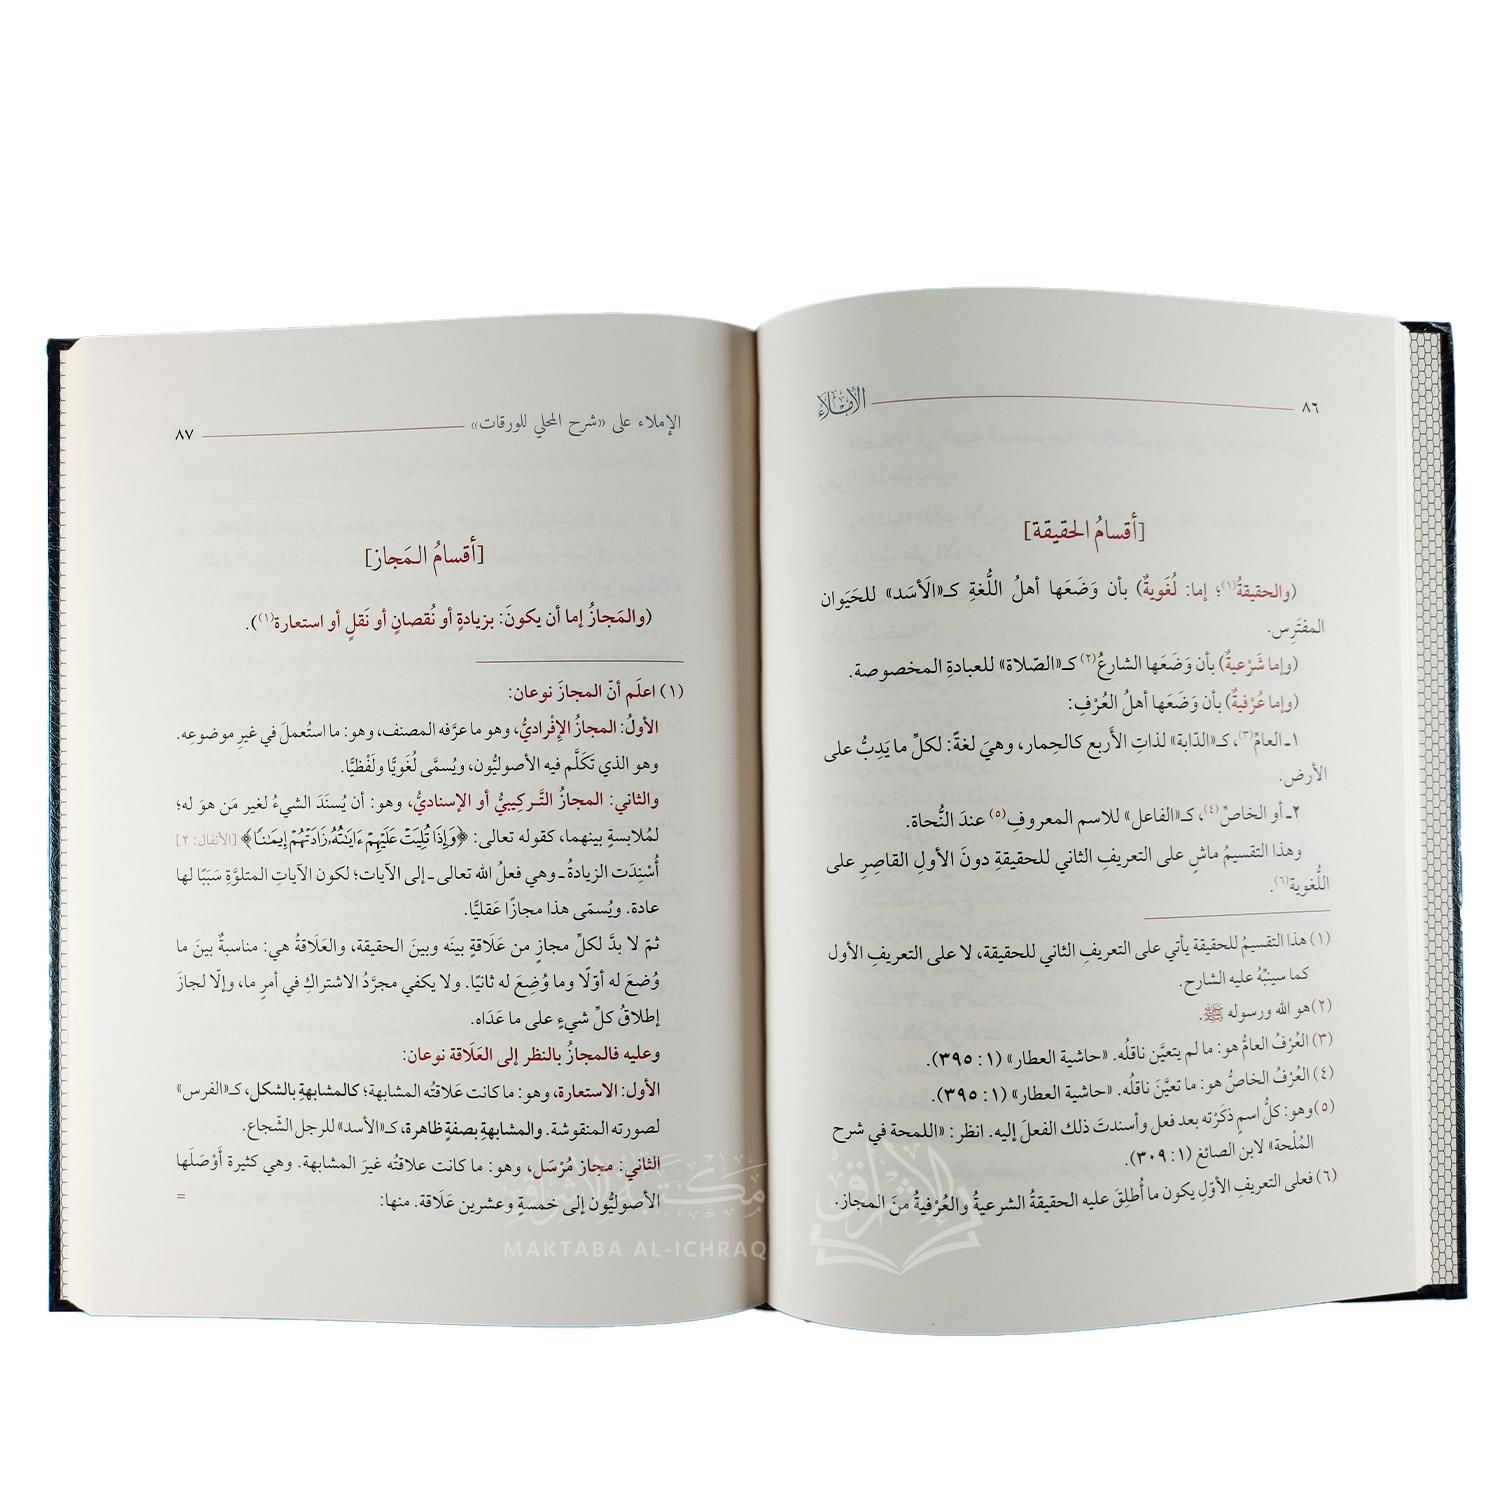 ٨٦
الإملاء
[أقسامُ الحقيقة]
(والحقيقةُ(١)؛ إما: لُغَويةٌ) بأن وَضَعَها أهلُ اللُّغةِ كـ«الأَسَد» للحَيَوان
المفتَرِس.
(وإما شَرْعيةٌ) بأن وَضَعَها الشارعُ(٢) كـ«الصّلاة» للعبادةِ المخصوصة.
(وإما عُرْفيةٌ) بأن وَضَعَها أهلُ العُرْفِ:
١ـ العامِّ(٣)، كـ«الدّابة» لذاتِ الأَربع كالحِمار، وهيَ لغةً: لكلِّ ما يَدِبُّ على
الأرض.
٢ـ أو الخاصِّ(٤)، كـ«الفاعل» للاسم المعروفِ(٥) عندَ النُّحاة.
وهذا التقسيمُ ماشٍ على التعريفِ الثاني للحقيقةِ دونَ الأولِ القاصِرِ على
اللُّغوية(٦).
(١) هذا التقسيمُ للحقيقة يأتي على التعريفِ الثاني للحقيقة، لا على التعريفِ الأول
كما سينبِّهُ عليه الشارح.
(٢) هو الله ورسوله ﷺ.
(٣) العُرْفُ العامُّ هو: ما لم يتعيَّن ناقلُه. «حاشية العطار» (١: ٣٩٥).
(٤) العُرْفُ الخاصُّ هو: ما تعيَّنَ ناقلُه. «حاشية العطار» (١: ٣٩٥).
(٥) وهو: كلُّ اسمٍ ذكَرْته بعد فعل وأسندتَ ذلك الفعلَ إليه. انظر: «اللمحة في شرح
المُلْحة» لابن الصائغ (١: ٣٠٩).
(٦) فعلى التعريفِ الأوّلِ يكون ما أُطلِقَ عليه الحقيقةُ الشرعيةُ والعُرْفيةُ منَ المجاز.
الإملاء على «شرح المحلي للورقات»
٨٧
[أقسامُ المَجاز]
(والمَجازُ إما أن يكونَ: بزيادةٍ أو نُقصانٍ أو نَقلٍ أو استعارة(١)).
(١) اعلَم أنّ المجازَ نوعان:
الأولُ: المجازُ الإفْراديُّ، وهو ما عرَّفه المصنف، وهو: ما استُعملَ في غيرِ موضوعِه.
وهو الذي تَكَلَّم فيه الأصوليُّون، ويُسمَّى لُغَويًّا ولَفْظيًّا.
والثاني: المجازُ التَّركيبيُّ أو الإسناديُّ، وهو: أن يُسنَدَ الشيءُ لغير مَن هوَ له؛
لمُلابسةٍ بينهما، كقوله تعالى: ﴿وَإِذَا تُلِيَتْ عَلَيْهِمْ ءَايَٰتُهُۥ زَادَتْهُمْ إِيمَٰنًا﴾ [الأنفال: ٢]
أُسْنِدَت الزيادةُ ـ وهي فعلُ الله تعالى ـ إلى الآيات؛ لكون الآياتِ المتلوَّةِ سَبَبًا لها
عادة. ويُسمّى هذا مجازًا عَقليًّا.
ثمّ لا بدَّ لكلِّ مجازٍ من عَلَاقةٍ بينَه وبينَ الحقيقة، والعَلَاقةُ هي: مناسبةٌ بينَ ما
وُضعَ له أوّلًا وما وُضِعَ له ثانيًا. ولا يكفي مجرَّدُ الاشتراكِ في أمرٍ ما، وإلّا لجازَ
إطلاقُ كلِّ شيءٍ على ما عَدَاه.
وعليه فالمجازُ بالنظر إلى العَلَاقة نوعان:
الأول: الاستعارة، وهو: ما كانت عَلاقتُه المشابهة؛ كالمشابهةِ بالشكل، كـ«الفرس»
لصورته المنقوشة. والمشابهةِ بصفةٍ ظاهرة، كـ«الأسد» للرجل الشّجاع.
الثاني: مجاز مُرْسَل، وهو: ما كانت علاقتُه غيرَ المشابهة. وهي كثيرة أَوْصَلَها
الأصوليُّون إلى خمسةٍ وعشرين عَلَاقة. منها:
=
مكتبة الإشراق
MAKTABA AL-ICHRAQ
الإشراق